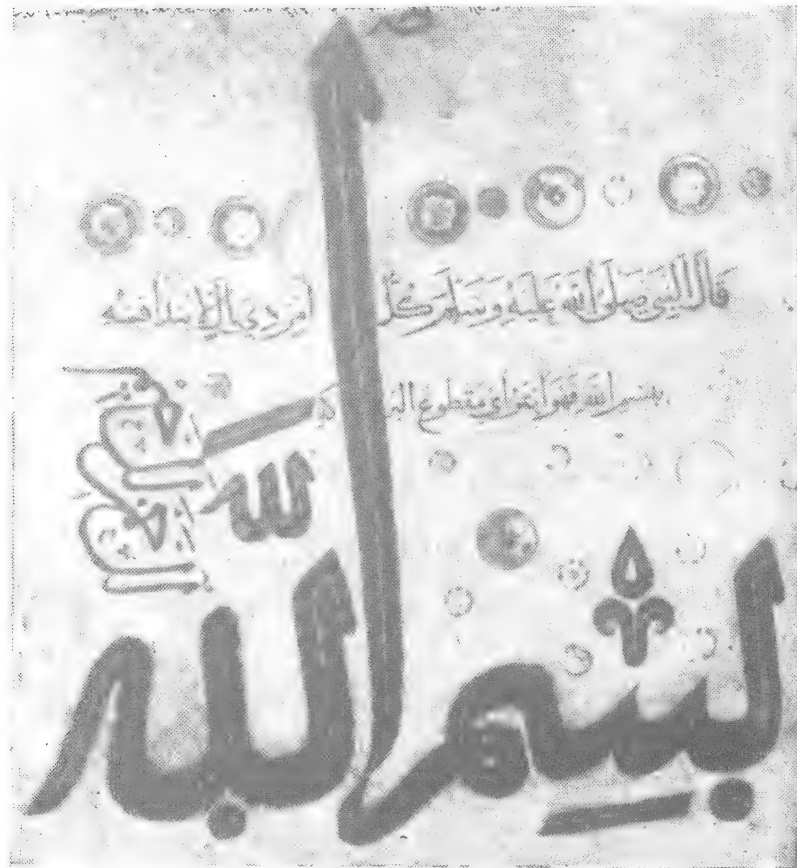 قال النبي صلى الله عليه وسلم كل امر ذي بال لا يبدا فيه
بسم الله فهو ابتر اي مقطوع البركة
لله
بسم الله